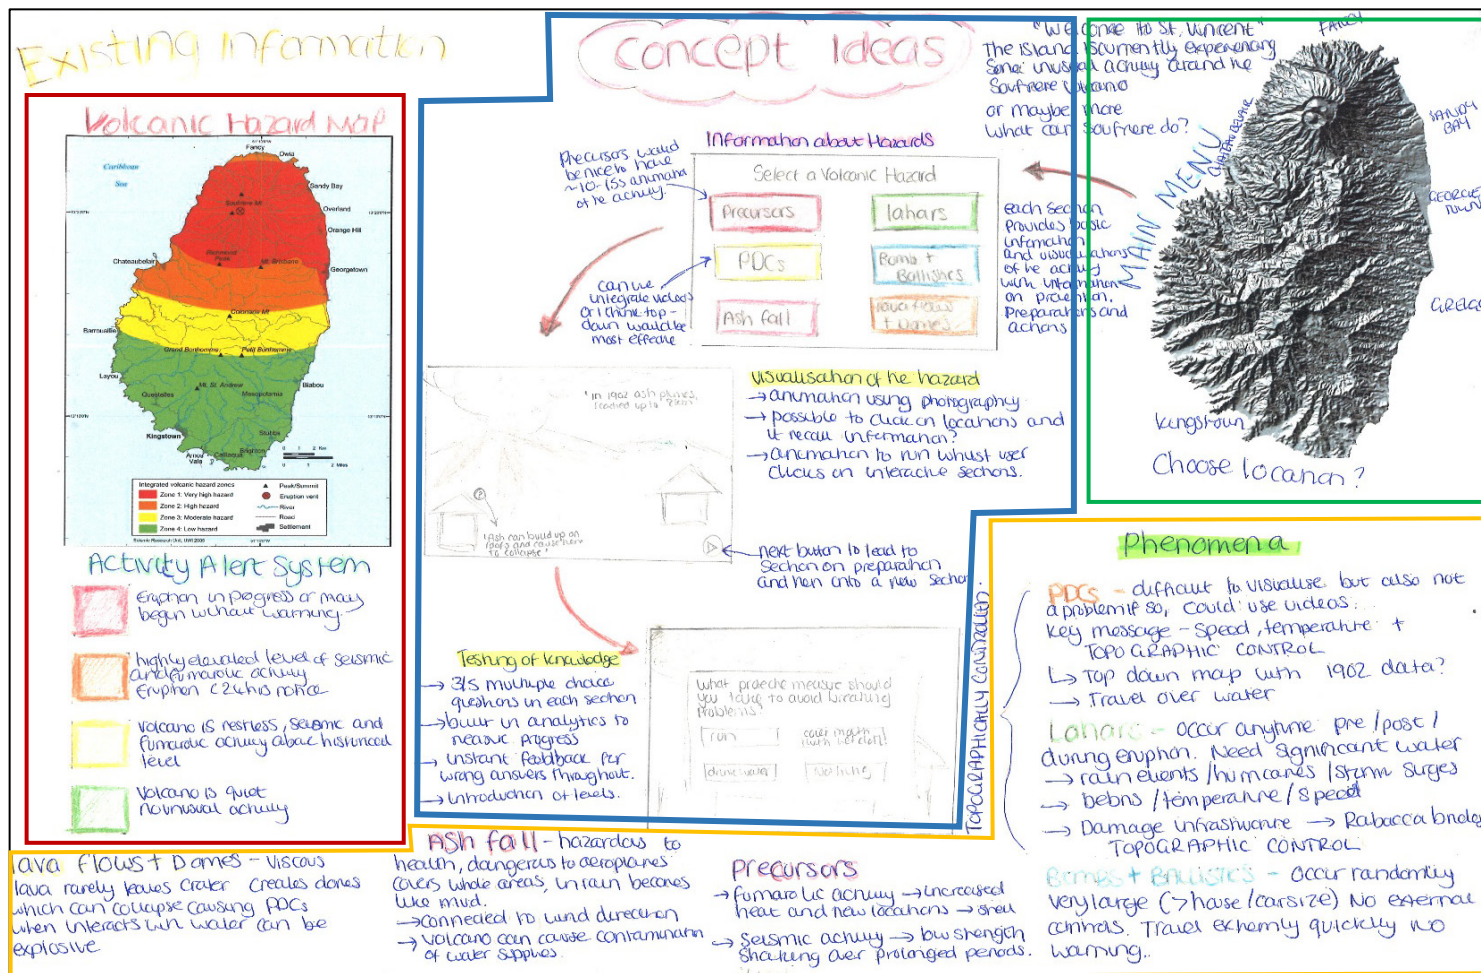 Existing Information
Volcanic Hazard Map
Caribbean
Sea
Fancy
Owia
Sandy Bay
Overland
Orange Hill
Georgetown
Chateaubelair
Soufriere Mt
Richmond Peak
Mt. Brisbane
Colonarie Mt
Barrouallie
Grand Bonhomme
Petit Bonhomme
Layou
Mt. St. Andrew
Questelles
Mesopotamia
Biabou
Kingstown
Stubbs
Arnos Vale
Calliaqua
Brighton
Integrated volcanic hazard zones
Zone 1: Very high hazard
Zone 2: High hazard
Zone 3: Moderate hazard
Zone 4: Low hazard
Peak/Summit
Eruption vent
River
Road
Settlement
Activity Alert System
Eruption in progress or may
begin without warning.
highly elevated level of seismic
and fumarolic activity
Eruption <24hrs notice
Volcano is restless, seismic and
fumarolic activity above historical
level
Volcano is quiet
no unusual activity
Concept Ideas
Information about Hazards
Precursors would
be nice to have
~10-15s animation
of the activity.
Select a Volcanic Hazard
Precursors
lahars
PDCs
Bombs +
Ballistics
Ash fall
lava flows
+ Domes
can we
integrate videos
or I think top-
down would be
most effective
each section
provides basic
information
and visualisations
of the activity
with information
on protection,
preparations and
actions
"In 1902 ash plumes
reached up to
'Ash can build up on
roofs and cause them
to collapse'
Visualisation of the hazard
→ animation using photography
→ possible to click on locations and
it recall information?
→ animation to run whilst user
clicks on interactive sections.
next button to lead to
section on preparation
and then into a new section
Testing of knowledge
→ 3/5 multiple choice
questions in each section
→ built in analytics to
measure progress
→ instant feedback for
wrong answers throughout.
→ introduction of levels.
What protective measure should
you take to avoid breathing
problems?
run
cover mouth
drink water
"Welcome to St. Vincent"
The island is currently experiencing
some unusual activity around the
Soufriere volcano
or maybe more
What can Soufriere do?
MAIN MENU
FANCY
CHATEAUBELAIR
SANDY
BAY
GEORGE
TOWN
Kingstown
Choose location?
Phenomena
TOPOGRAPHICALLY CONTROLLED.
PDCs - difficult to visualise but also not
a problem if so, could use videos.
Key message - Speed, temperature +
TOPOGRAPHIC CONTROL
↳ Top down map with 1902 data?
→ Travel over water
Lahars - occur anytime pre / post /
during eruption. Need significant water
→ rain events / hurricanes / storm surges
→ Debris / temperature / speed
→ Damage infrastructure → Rabacca bridge
TOPOGRAPHIC CONTROL
Bombs + Ballistics - occur randomly
very large (> house / car size) No external
controls. Travel extremely quickly no
warning..
lava flows + Domes - viscous
lava rarely leaves crater creates domes
which can collapse causing PDCs
when interacts with water can be
explosive
Ash fall - hazardous to
health, dangerous to aeroplanes
covers whole areas, in rain becomes
like mud.
→ connected to wind direction
→ Volcano can cause contamination
of water supplies.
Precursors
→ fumarolic activity → increased
heat and new locations → smell
→ Seismic activity → low strength
shaking over prolonged periods.